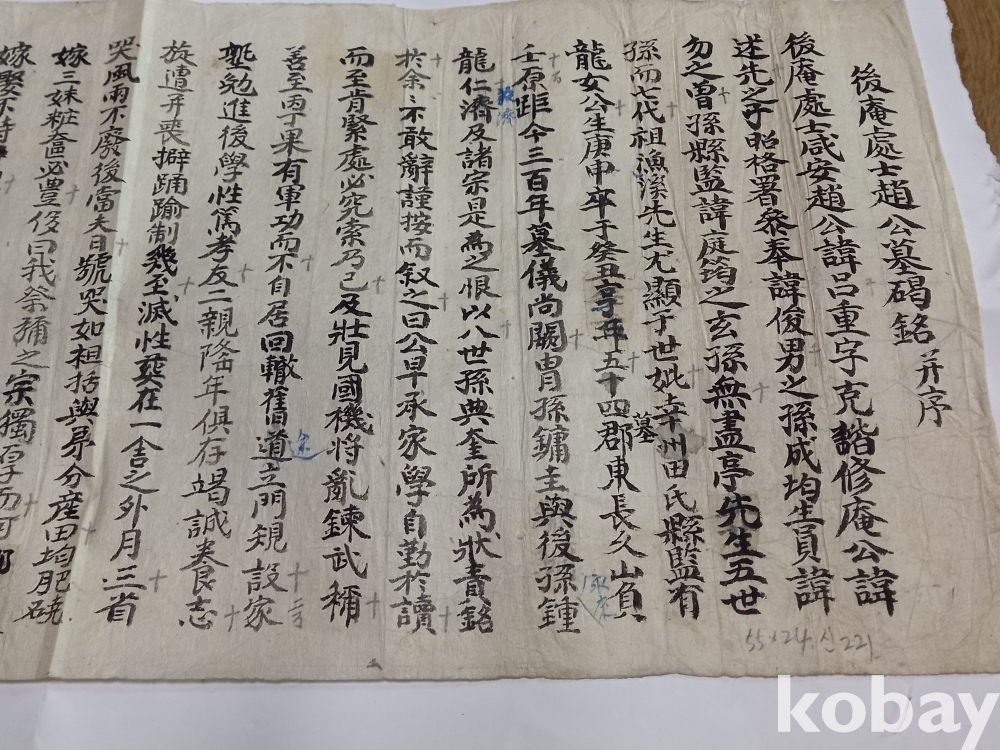 後庵處士趙公墓碣銘 并序
後庵處士咸安趙公諱呂重字克諧修庵公諱
述先之子昭格署叅奉諱俊男之孫成均生員諱
勿之曾孫縣監諱庭筠之玄孫無盡亭先生五世
孫而七代祖漁溪先生尤顯于世妣幸州田氏縣監有
龍女公生庚申卒于癸丑享年五十四墓郡東長久山負
壬原距今三百年墓儀尚闕胄孫鏞圭與後孫鍾
龍仁濟及諸宗是爲之恨以八世孫典奎所爲狀責銘
於余余不敢辭謹按而叙之曰公早承家學自勤於讀
而至肯緊處必究索乃已及壯見國機將亂鍊武稱
善至丙丁果有軍功而不自居回轍舊道立門規設家
塾勉進後學性篤孝友二親隆年俱存竭誠養志
旋遭并喪擗踊踰制幾至滅性葬在一舍之外月三省
哭風雨不廢後當夫日號哭如袒括與昇分産田均肥磽
嫁三妹粧奩必豊侈曰我祭禰之宗獨享而可
嫁娶不時
龍濟
55x24. 신221
kobay